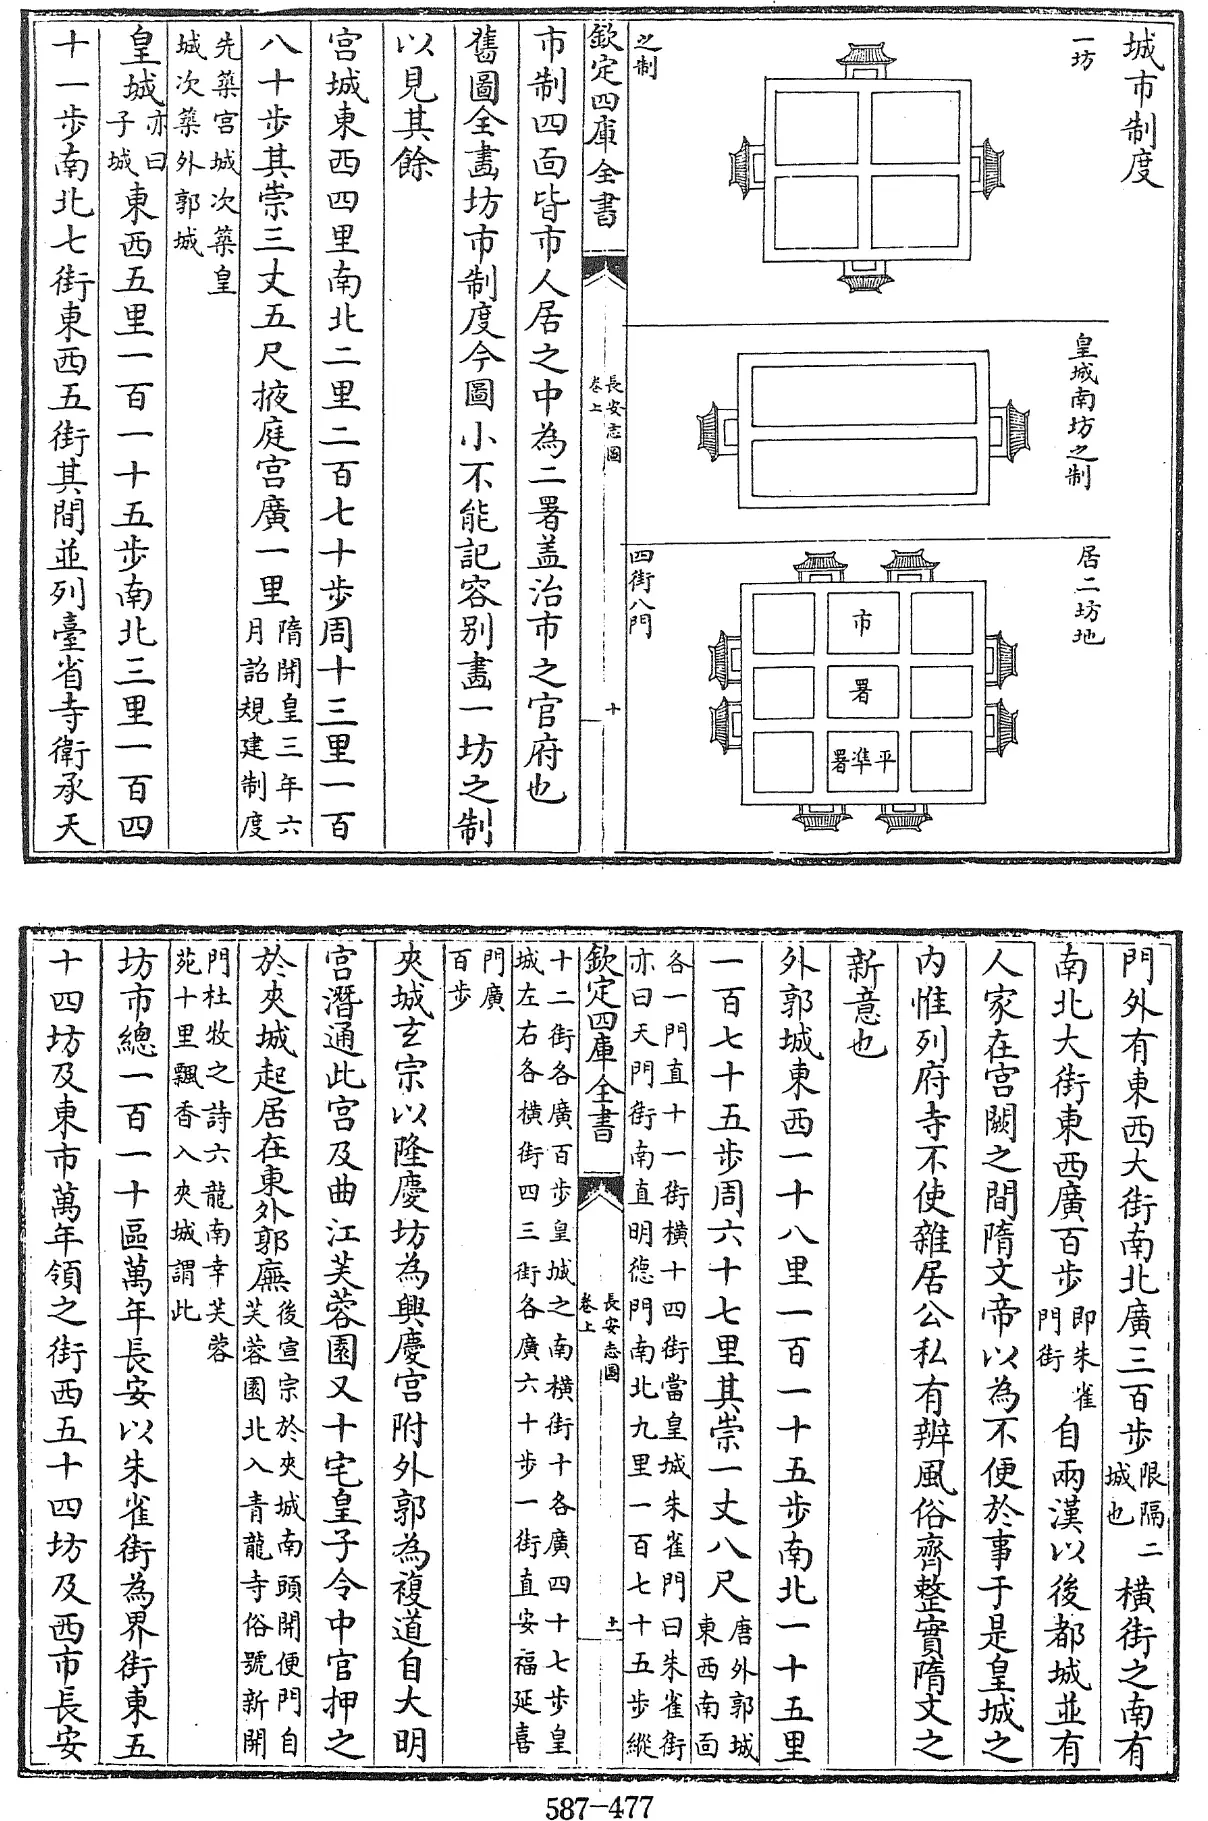 城市制度
一坊
之制
皇城南坊之制
居二坊地
四街八門
市
署
平準署
欽定四庫全書
長安志圖
卷上
十
市制四面皆市人居之中為二署盖治市之官府也
舊圖全畫坊市制度今圖小不能記容別畫一坊之制
以見其餘
宫城東西四里南北二里二百七十步周十三里一百
八十步其崇三丈五尺掖庭宫廣一里隋開皇三年六
月詔規建制度
先築宫城次築皇
城次築外郭城
皇城亦曰
子城東西五里一百一十五步南北三里一百四
十一步南北七街東西五街其間並列臺省寺衛承天
門外有東西大街南北廣三百步限隔二
城也橫街之南有
南北大街東西廣百步即朱雀
門街自兩漢以後都城並有
人家在宫闕之間隋文帝以為不便於事于是皇城之
内惟列府寺不使雜居公私有辨風俗齊整實隋文之
新意也
外郭城東西一十八里一百一十五步南北一十五里
一百七十五步周六十七里其崇一丈八尺唐外郭城
東西南面
各一門直十一街橫十四街當皇城朱雀門曰朱雀街
亦曰天門街南直明德門南北九里一百七十五步縱
欽定四庫全書
長安志圖
卷上
十一
十二街各廣百步皇城之南橫街十各廣四十七步皇
城左右各橫街四三街各廣六十步一街直安福延喜
門廣
百步
夾城玄宗以隆慶坊為興慶宫附外郭為複道自大明
宫潛通此宫及曲江芙蓉園又十宅皇子令中官押之
於夾城起居在東外郭廡後宣宗於夾城南頭開便門自
芙蓉園北入青龍寺俗號新開
門杜牧之詩六龍南幸芙蓉
苑十里飄香入夾城謂此
坊市總一百一十區萬年長安以朱雀街為界街東五
十四坊及東市萬年領之街西五十四坊及西市長安
587-477